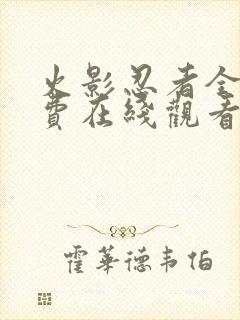 火影忍者全
費在綫觀看
霍華德韦伯